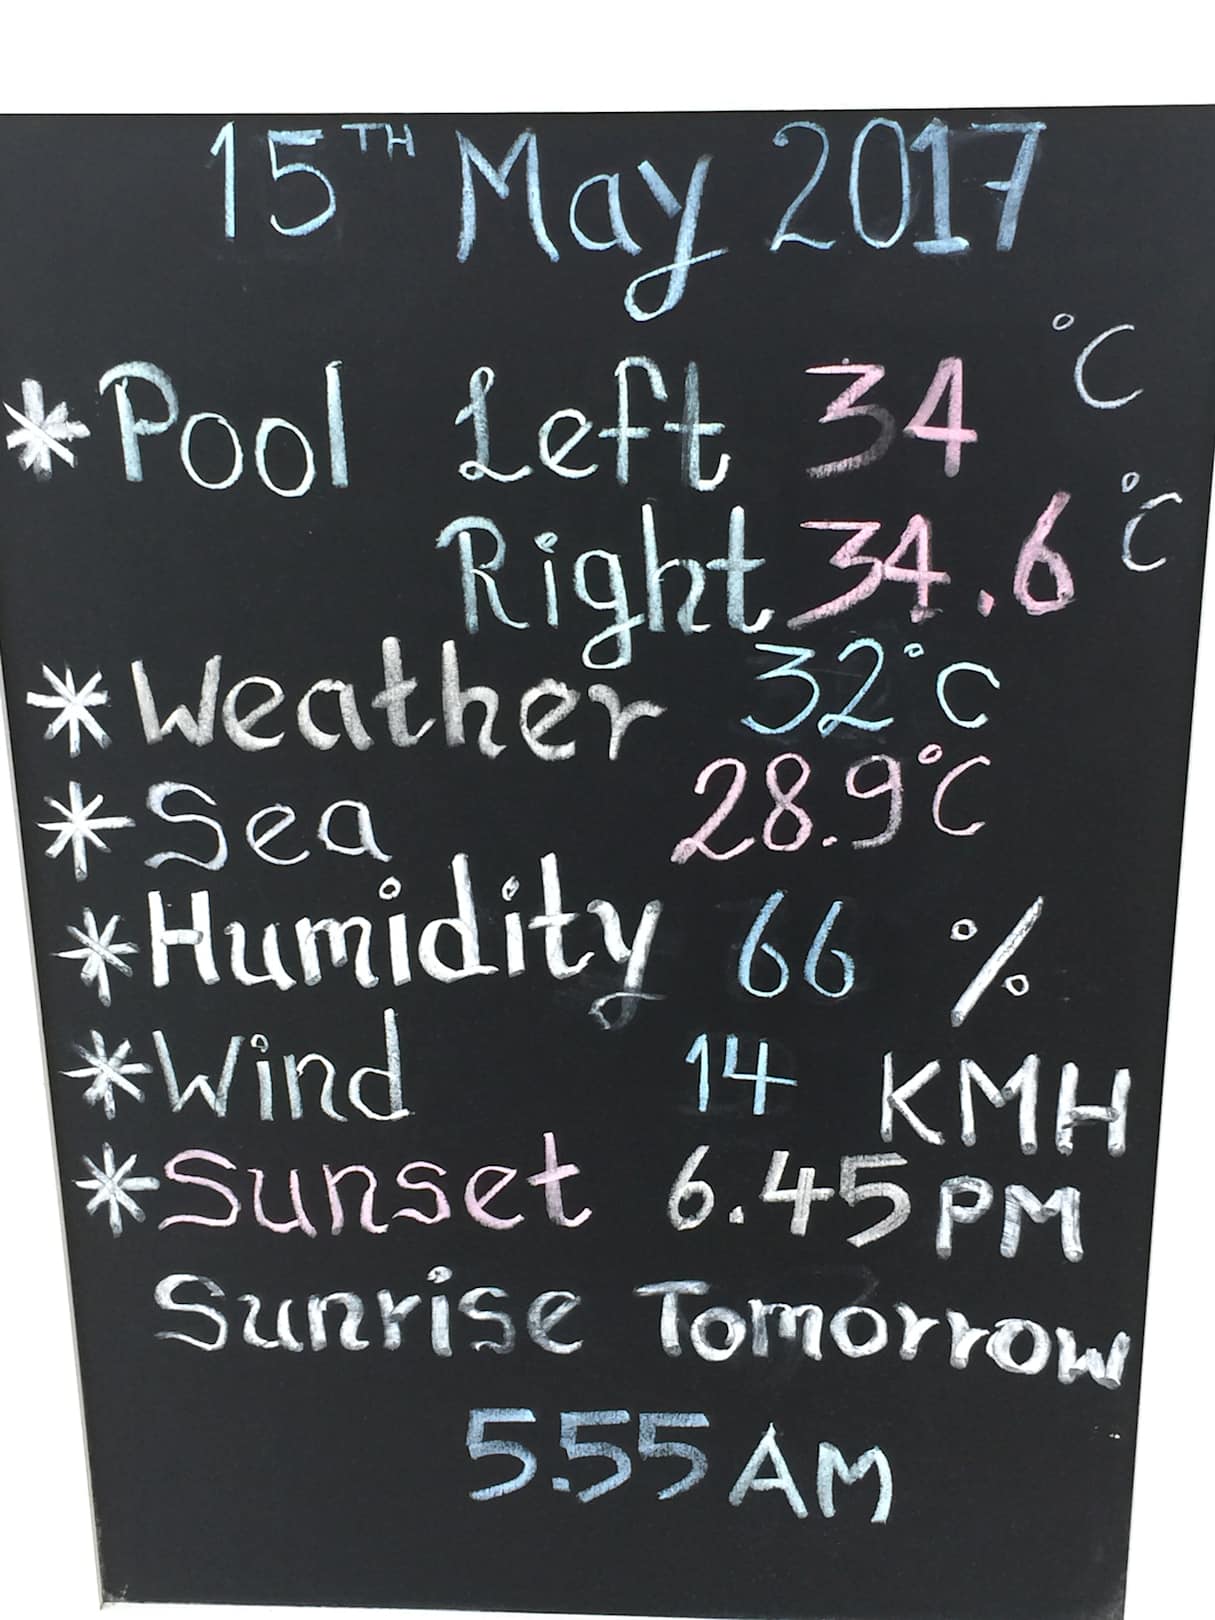 15TH May 2017
*Pool Left 34 °C
Right 34.6 °C
*Weather 32°C
*Sea 28.9°C
*Humidity 66 %
*Wind 14 KMH
*Sunset 6.45 PM
Sunrise Tomorrow
5.55 AM